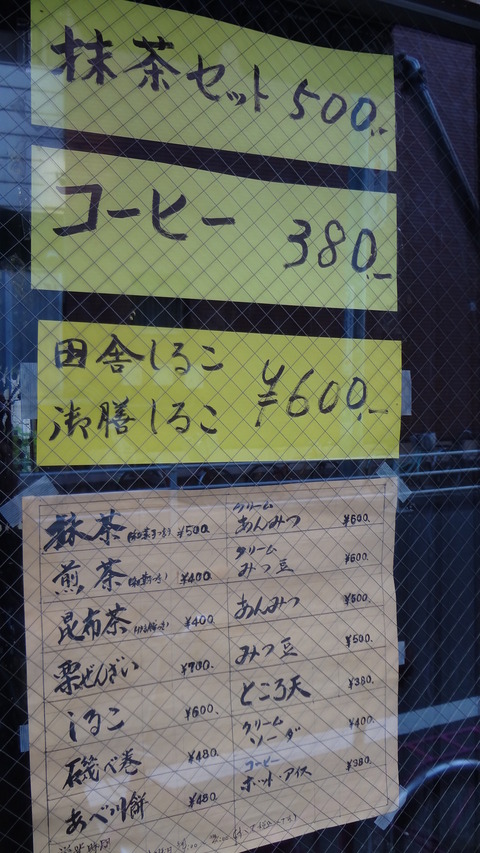 抹茶セット 500.-
コーヒー 380.-
田舎しるこ
御膳しるこ ¥600.-
抹茶 ¥500.
煎茶 ¥400.
昆布茶 ¥400
栗ぜんざい ¥700.
しるこ ¥600.
磯べ巻 ¥480.
あべ川餅 ¥480.
クリーム
あんみつ ¥600.
クリーム
みつ豆 ¥600.
あんみつ ¥500.
みつ豆 ¥500.
ところ天 ¥380.
クリーム
ソーダ ¥400.
コーヒー
ホット・アイス ¥380.